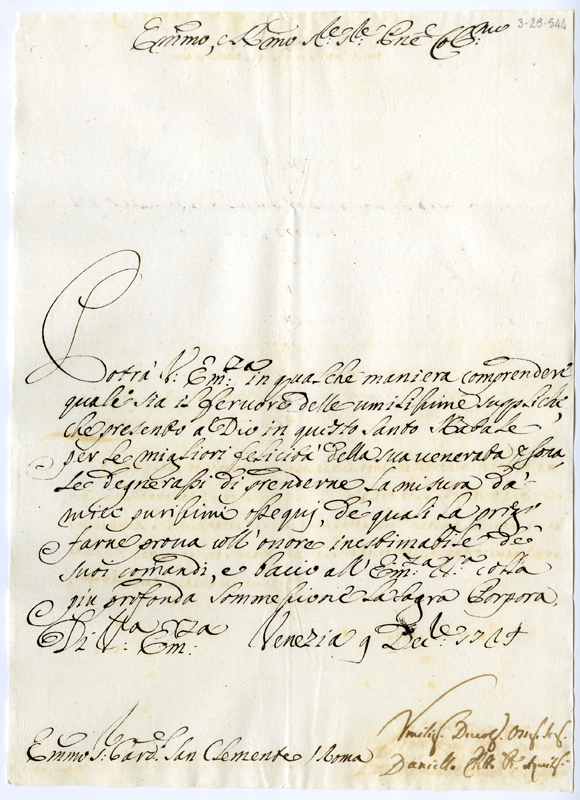 3-28-544
Emmo, e Rmo Sre Sre Pne Colmo
Potrà V: Em:za in qualche maniera comprendere
quale sia il fervore delle umilissime suppliche,
che presento a Dio in questo Santo Natale
per le migliori felicità della sua venerata persona,
se degnerassi di prenderne la misura da'
miei purissimi ossequj, de' quali la prego
farne prova coll' onore inestimabile de'
suoi comandi, e baccio all' Em:za Va colla
più profonda sommessione la sagra Porpora.
Di V:ra Em:za Venezia 9 Dec.e
Emmo Sr Card. San Clemente / Roma
Umilis. Devot. Oss. Ser.
Daniello